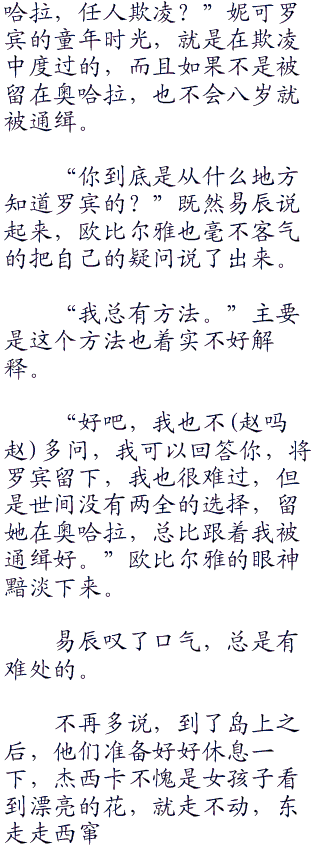 哈拉，任人欺凌？”妮可罗
宾的童年时光，就是在欺凌
中度过的，而且如果不是被
留在奥哈拉，也不会八岁就
被通缉。
“你到底是从什么地方
知道罗宾的？”既然易辰说
起来，欧比尔雅也毫不客气
的把自己的疑问说了出来。
“我总有方法。”主要
是这个方法也着实不好解
释。
“好吧，我也不(赵吗
赵)多问，我可以回答你，将
罗宾留下，我也很难过，但
是世间没有两全的选择，留
她在奥哈拉，总比跟着我被
通缉好。”欧比尔雅的眼神
黯淡下来。
易辰叹了口气，总是有
难处的。
不再多说，到了岛上之
后，他们准备好好休息一
下，杰西卡不愧是女孩子看
到漂亮的花，就走不动，东
走走西窜